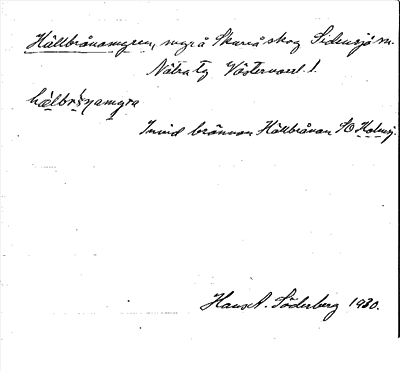 Hällbrånamyren, myrå Skaruå skog Sidensjö sn.
Nätra tg Västernorrl. l.
hälbrånamyra
Invid brännan Hällbrånan SO Holmsj.
Hans A. Söderberg 1930.